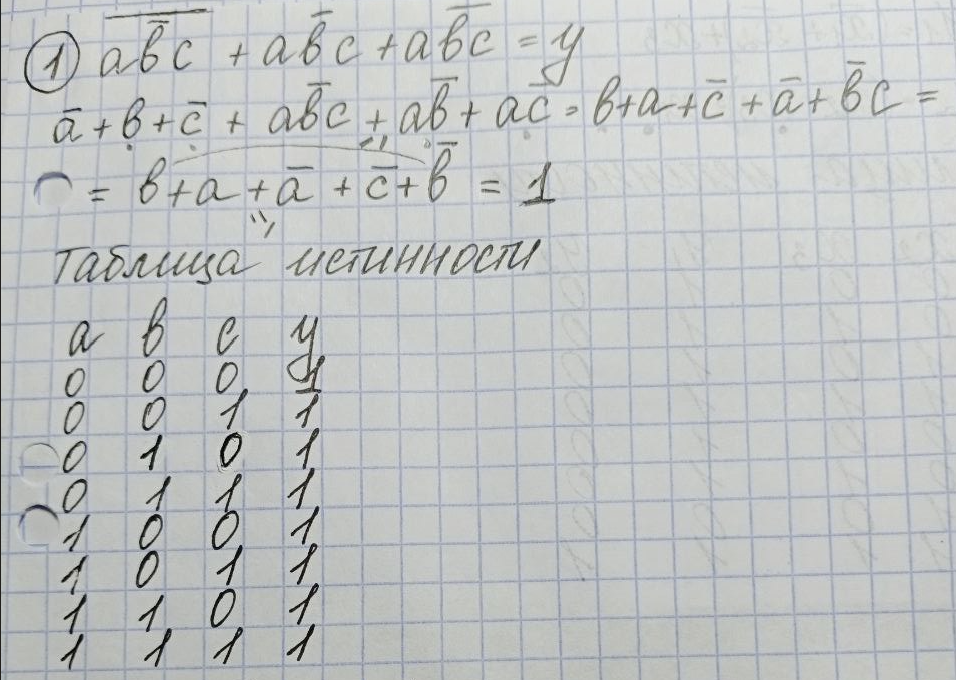 ① \overline{a\overline{b}c} + a\overline{b}c + a\overline{bc} = y
ā + b + c̄ + ab̄c + ab̄ + ac̄ = b + a + c̄ + ā + b̄c =
= b + a + ā + c̄ + b̄ = 1
Таблица истинности
a b c y
0 0 0 1
0 0 1 1
0 1 0 1
0 1 1 1
1 0 0 1
1 0 1 1
1 1 0 1
1 1 1 1